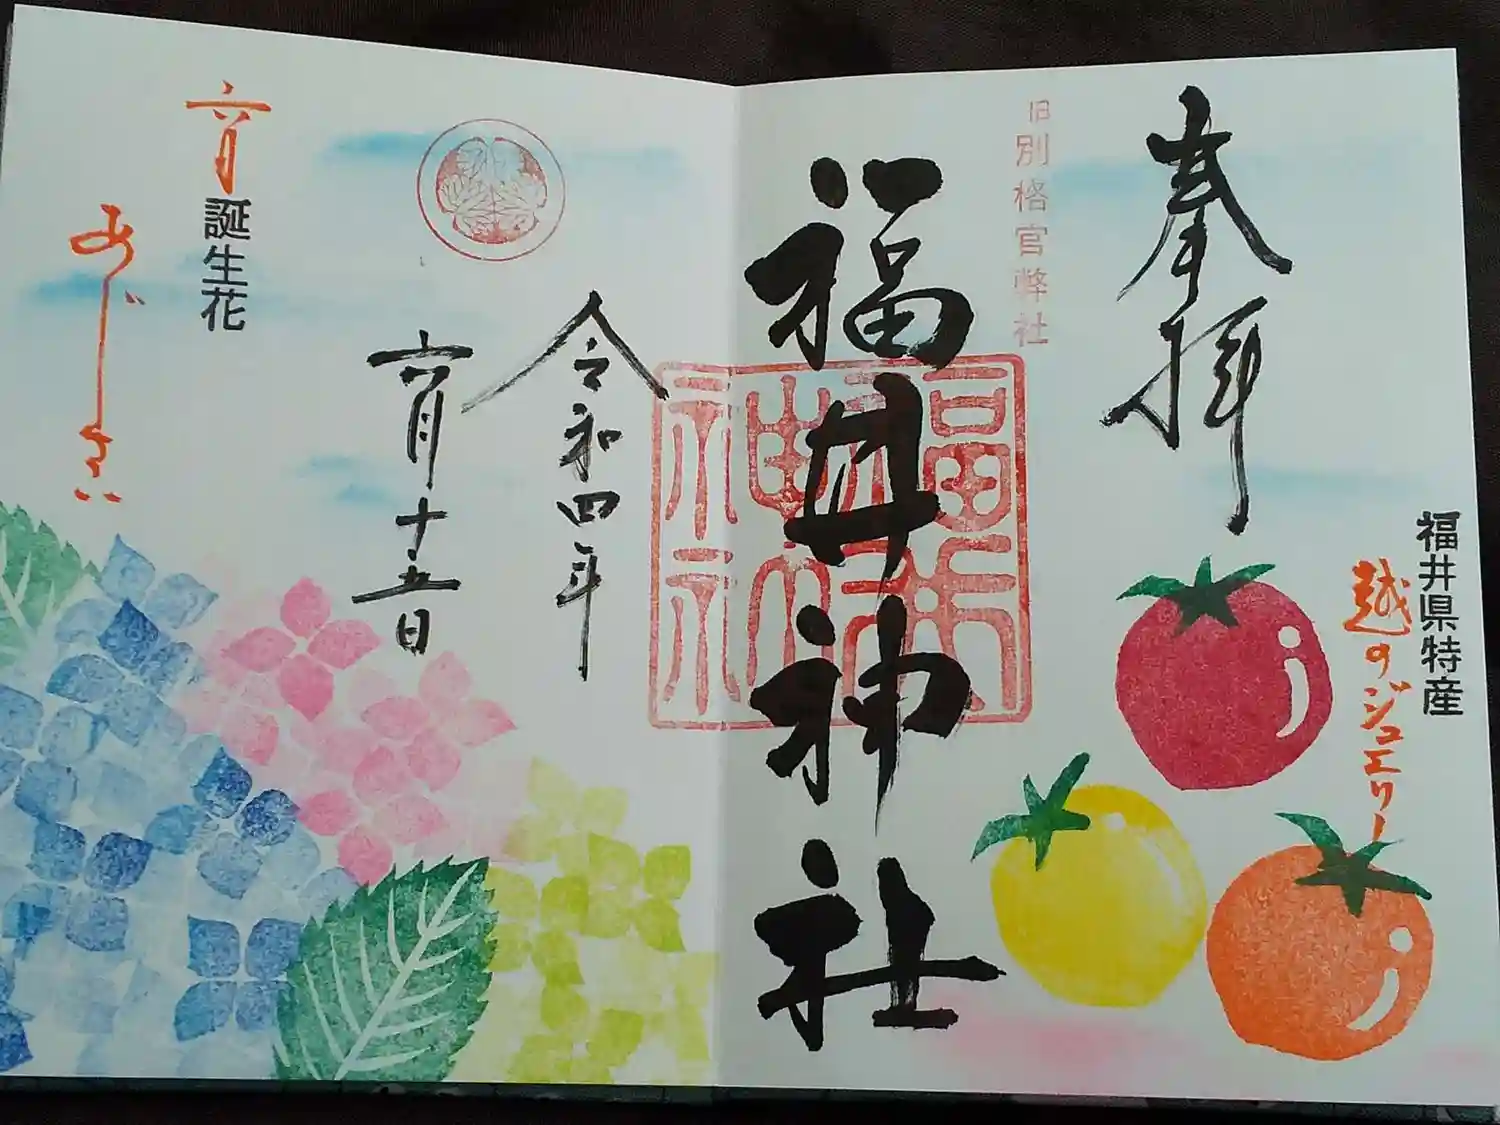 奉拝
福井県特産
越のジュエリー
旧別格官幣社
福井神社
福井神社
令和四年
六月十五日
六月
誕生花
あじさい